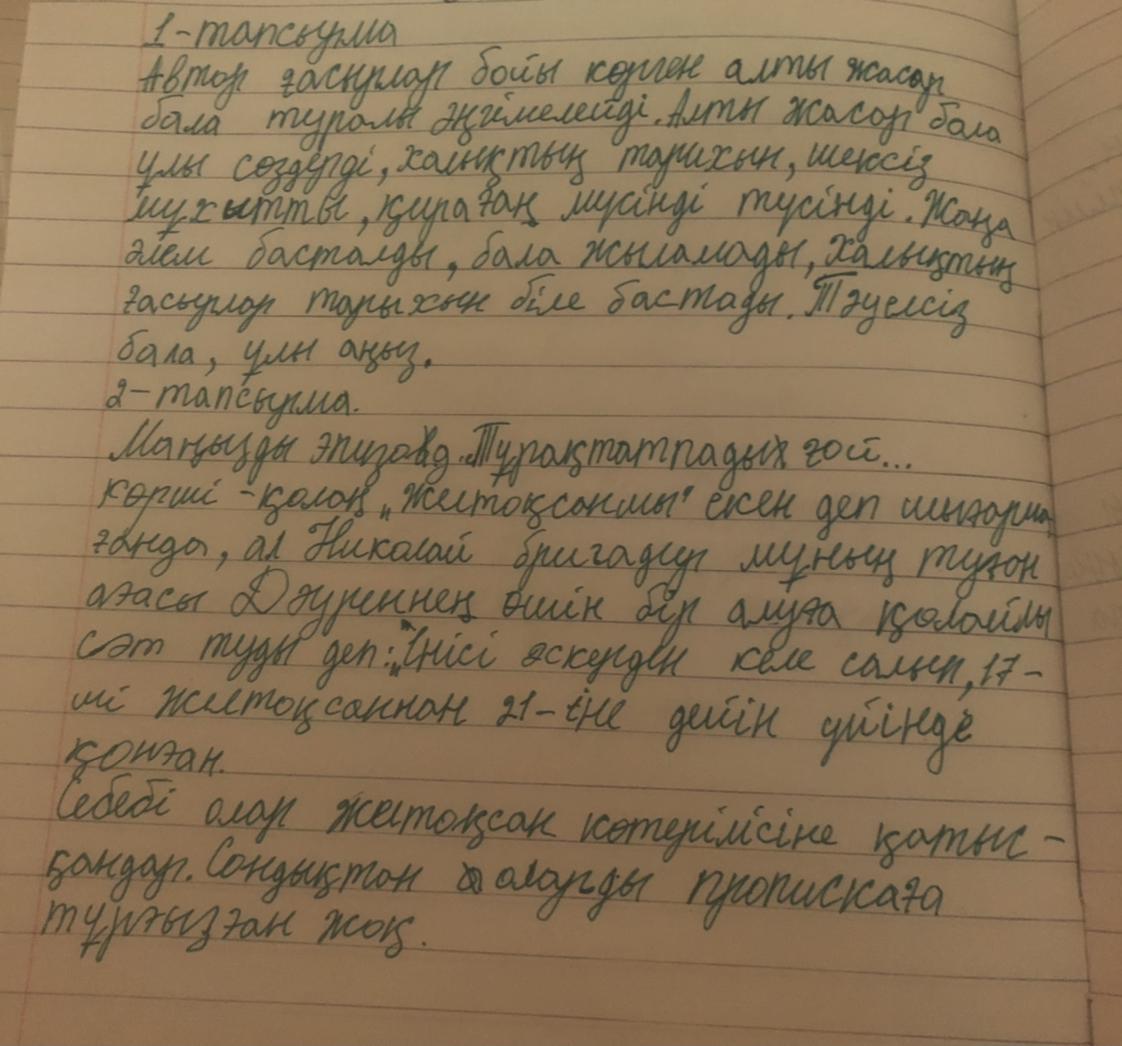 1-тапсырма
Автор ғасырлар бойы көрген алты жасар
бала туралы әңгімелейді. Алты жасар бала
ұлы сөздерді, халықтың тарихын, шексіз
мұхытты, қираған мүсінді түсінді. Жаңа
әлем басталды, бала жыламады, халықтың
ғасырлар тарыхын біле бастады. Тәуелсіз
бала, ұлы аңыз.
2-тапсырма.
Маңызды эпизовд. Тұрақтатпадых ғой...
көрші-қолаң „желтоқсанмы" екен деп шығарма
ғанда, ал Николай бригадир мұның туған
ағасы Дәуреннең өшін бір алуға қолайлы
сәт туды деп: „Інісі әскерден келе салып, 17-
ші желтоқсаннан 21-іне дейін үйінде
қонған.
Себебі олар желтоқсан көтерілісіне қатыс-
қандар. Сондықтан оларды прописката
тұрғызған жоқ.